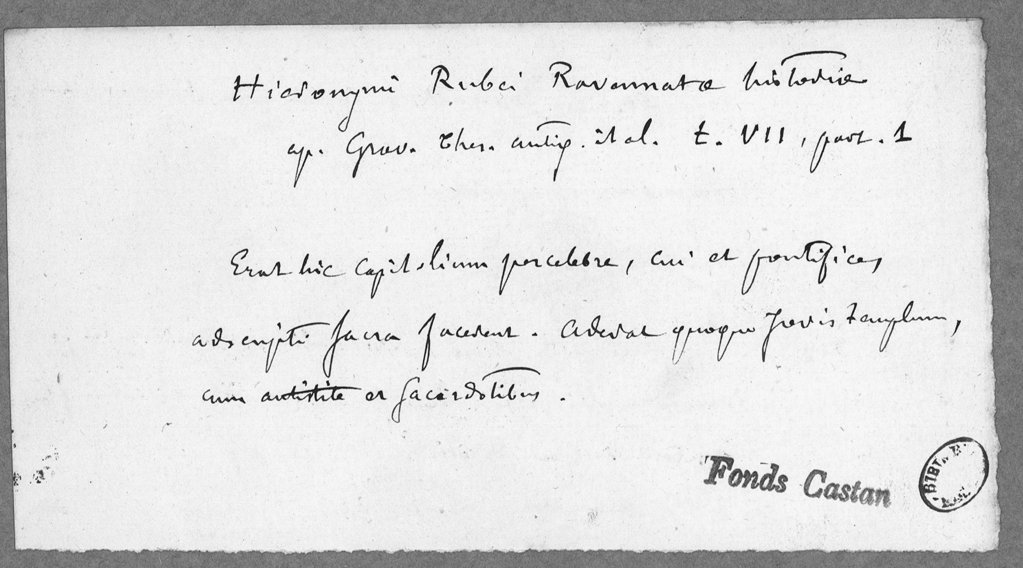 Hieronymi Rubei Ravennatæ historiæ
ap. Græv. Thes. antiq. ital. t. VII, part. 1
Erat hic capitolium percelebre, cui et pontifices
adscripti sacra facerent. Aderat quoque Jovis templum,
cum antistite et sacerdotibus.
Fonds Castan
BIBL